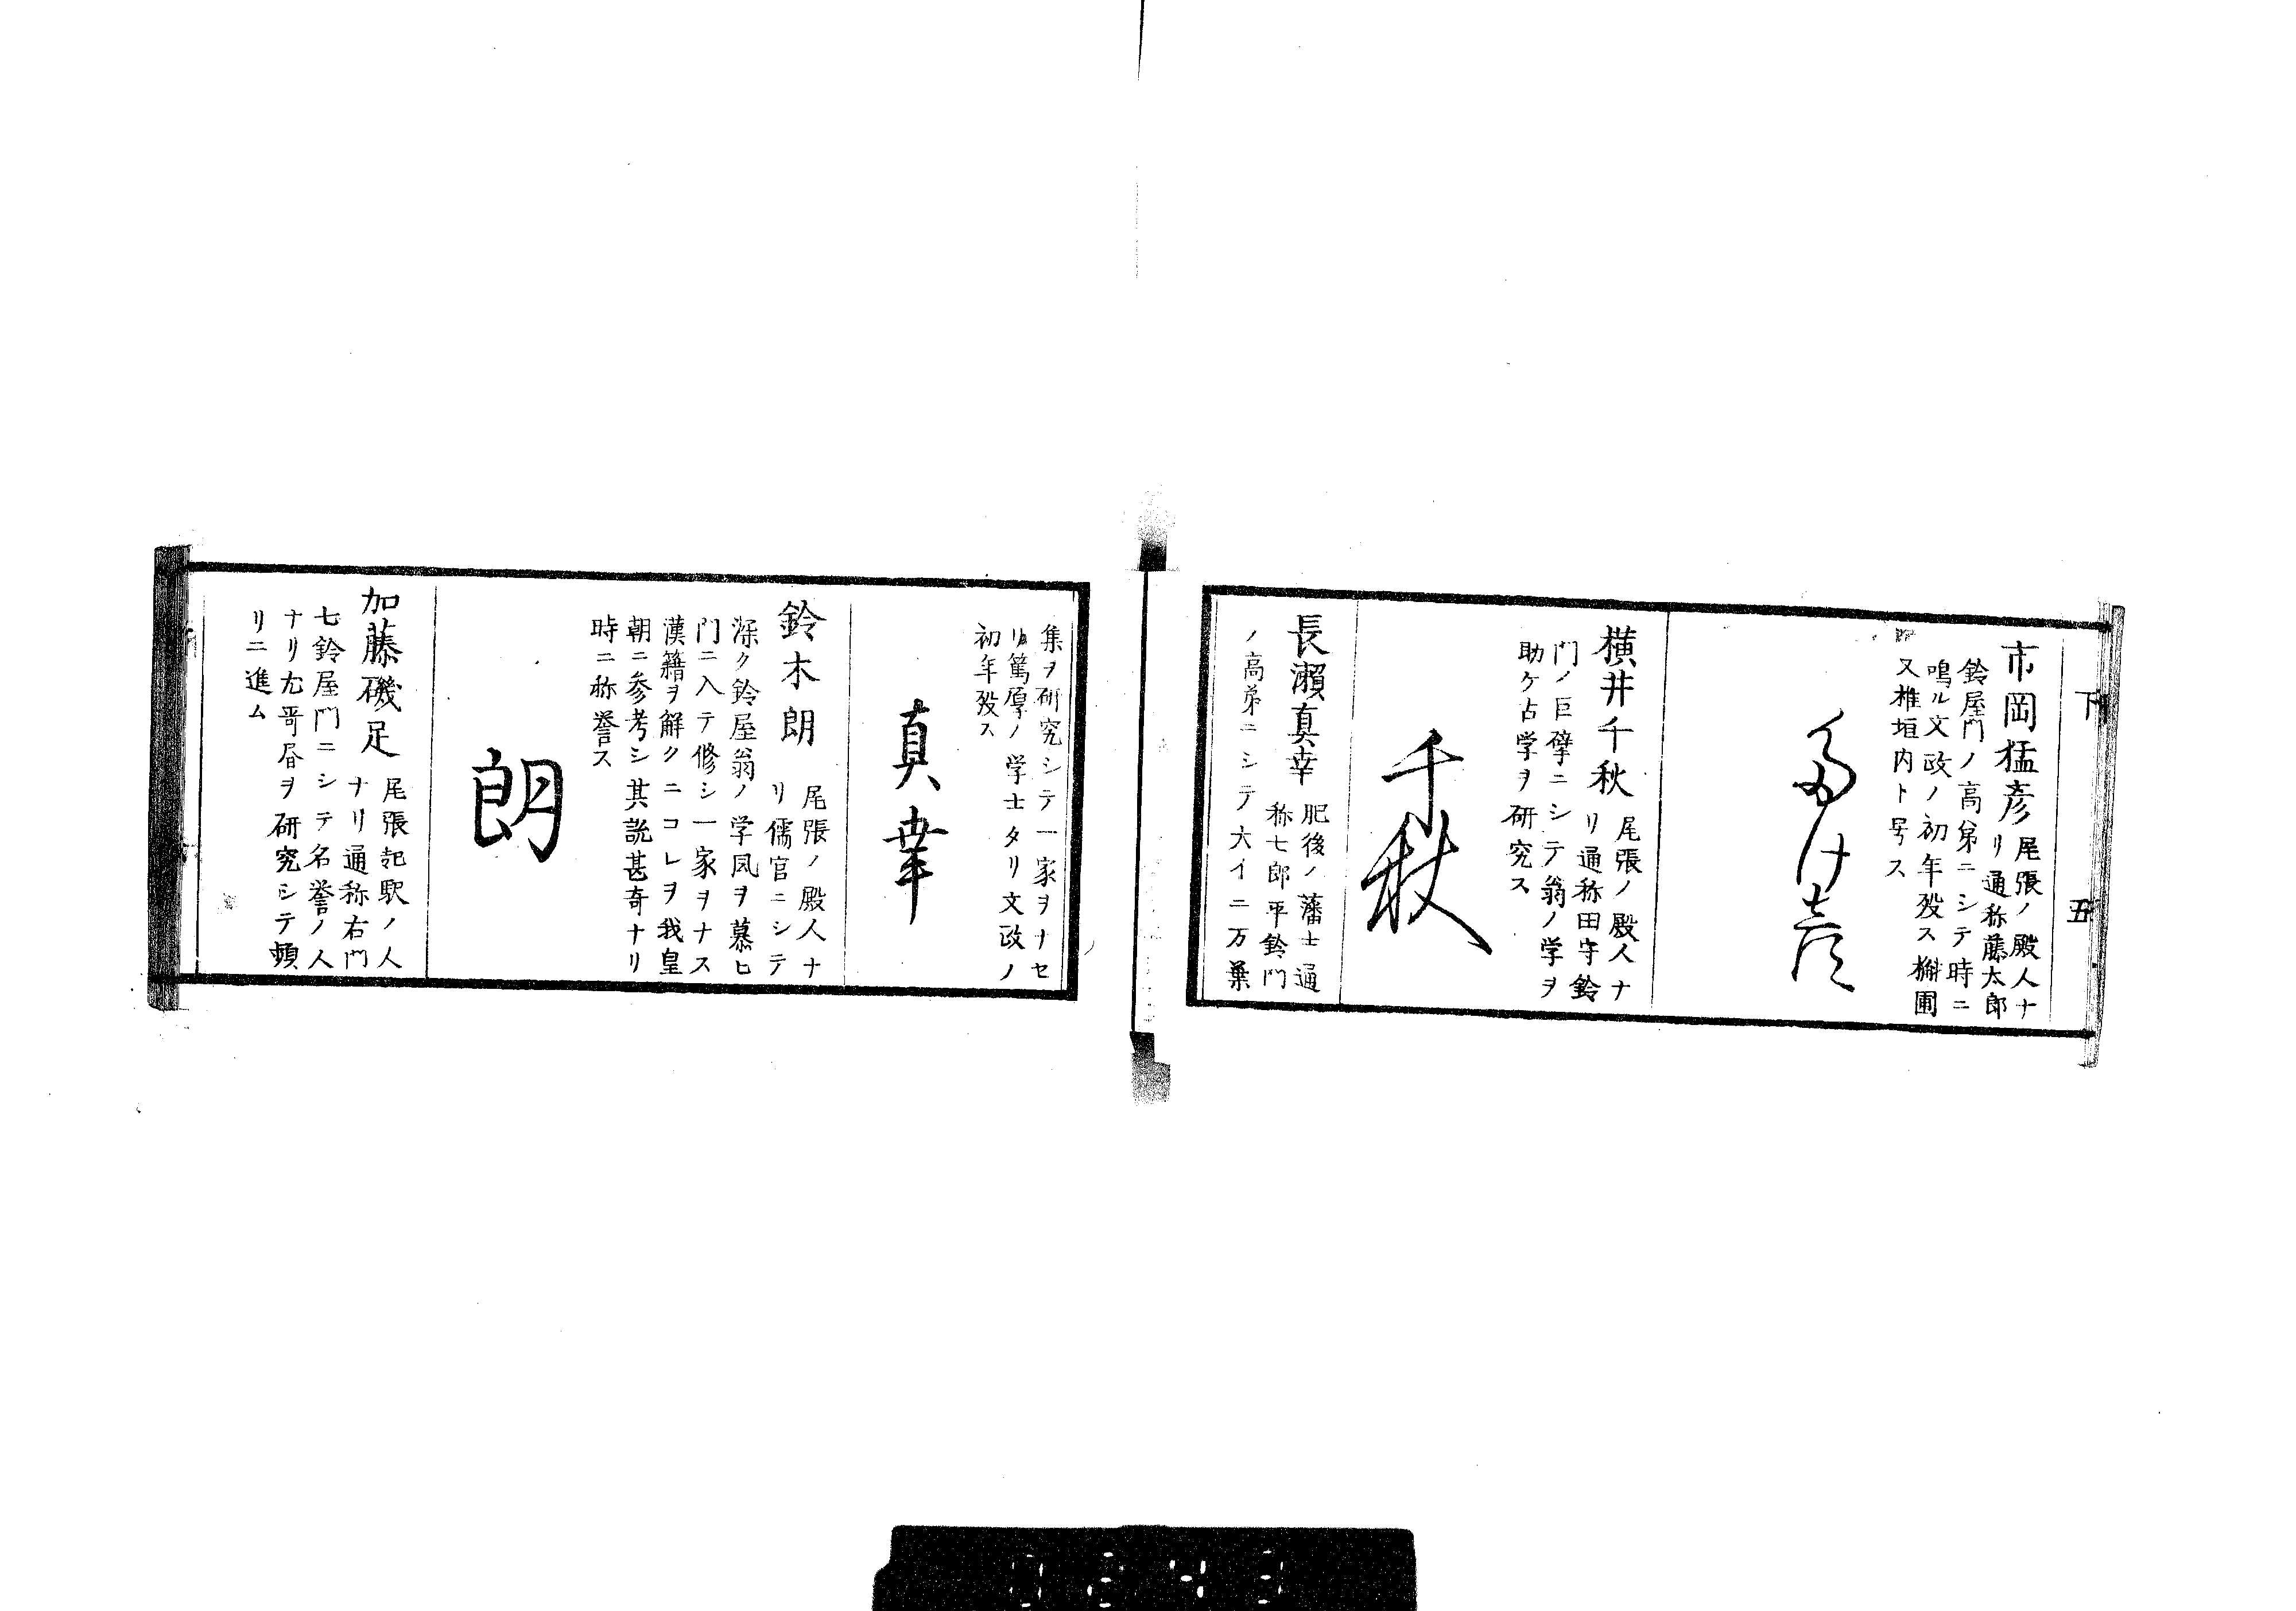 下 五
市岡猛彦
尾張ノ殿人ナ
リ通称藤太郎
鈴屋門ノ高第ニシテ時ニ
鳴ル文政ノ初年殁ス槲圃
又椎垣内ト号ス
たけ彦
横井千秋
尾張ノ殿人ナ
リ通称田守鈴
門ノ巨擘ニシテ翁ノ学ヲ
助ケ古学ヲ研究ス
千秋
長瀬真幸
肥後ノ藩士通
称七郎平鈴門
ノ高弟ニシテ大イニ万葉
集ヲ研究シテ一家ヲナセ
リ篤厚ノ学士タリ文政ノ
初年殁ス
真幸
鈴木朗
尾張ノ殿人ナ
リ儒官ニシテ
深ク鈴屋翁ノ学風ヲ慕ヒ
門ニ入テ修シ一家ヲナス
漢籍ヲ解クニコレヲ我皇
朝ニ参考シ其説甚奇ナリ
時ニ称誉ス
朗
加藤磯足
尾張起駅ノ人
ナリ通称右門
七鈴屋門ニシテ名誉ノ人
ナリ尤哥昏ヲ研究シテ頻
リニ進ム